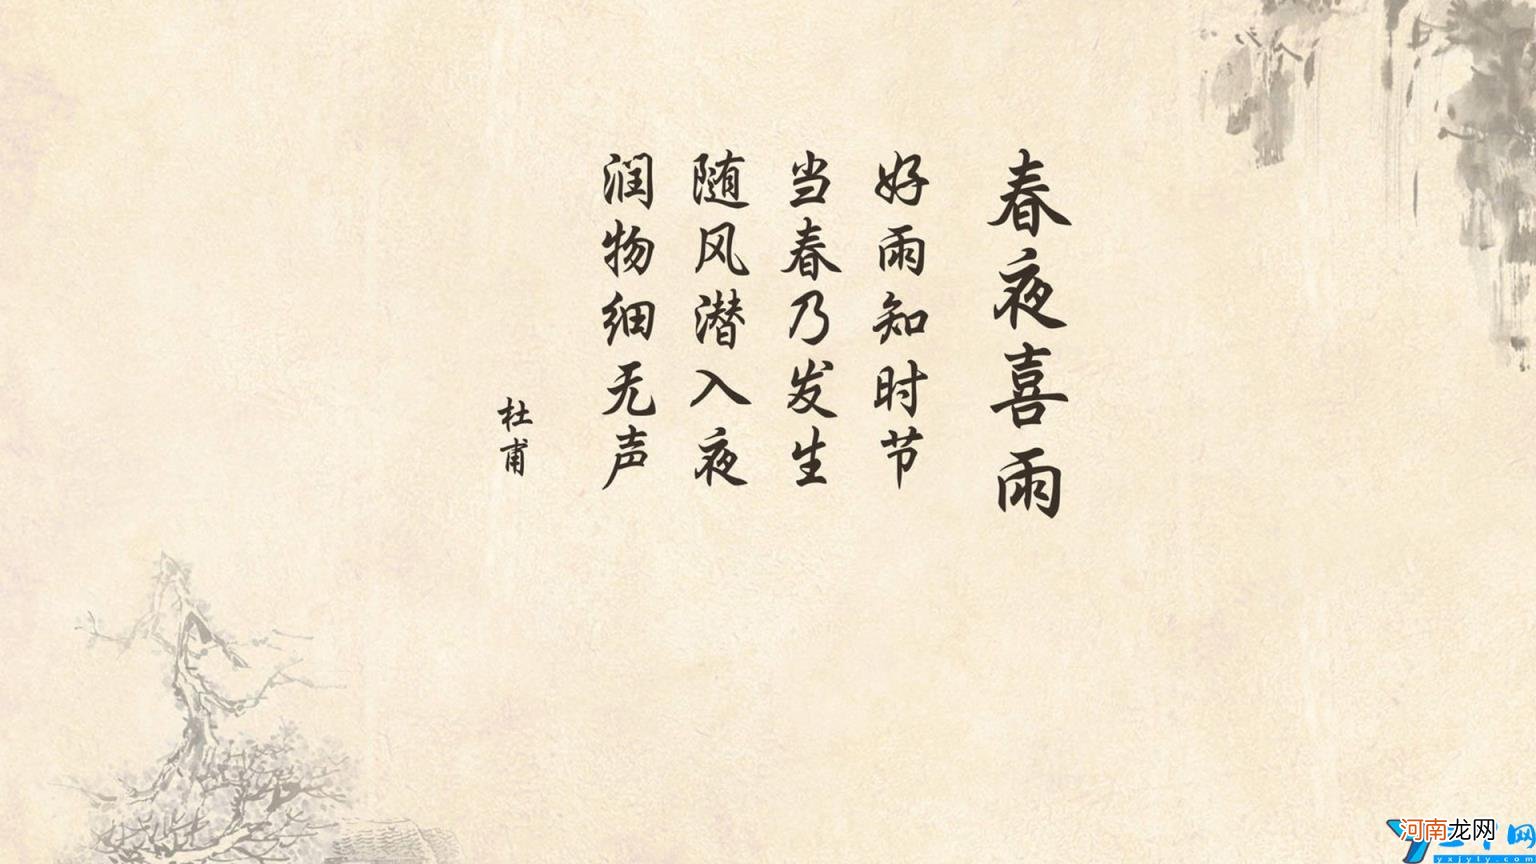 春夜喜雨
好雨知时节
当春乃发生
随风潜入夜
润物细无声
杜甫
河南龙网
yxjyly.com